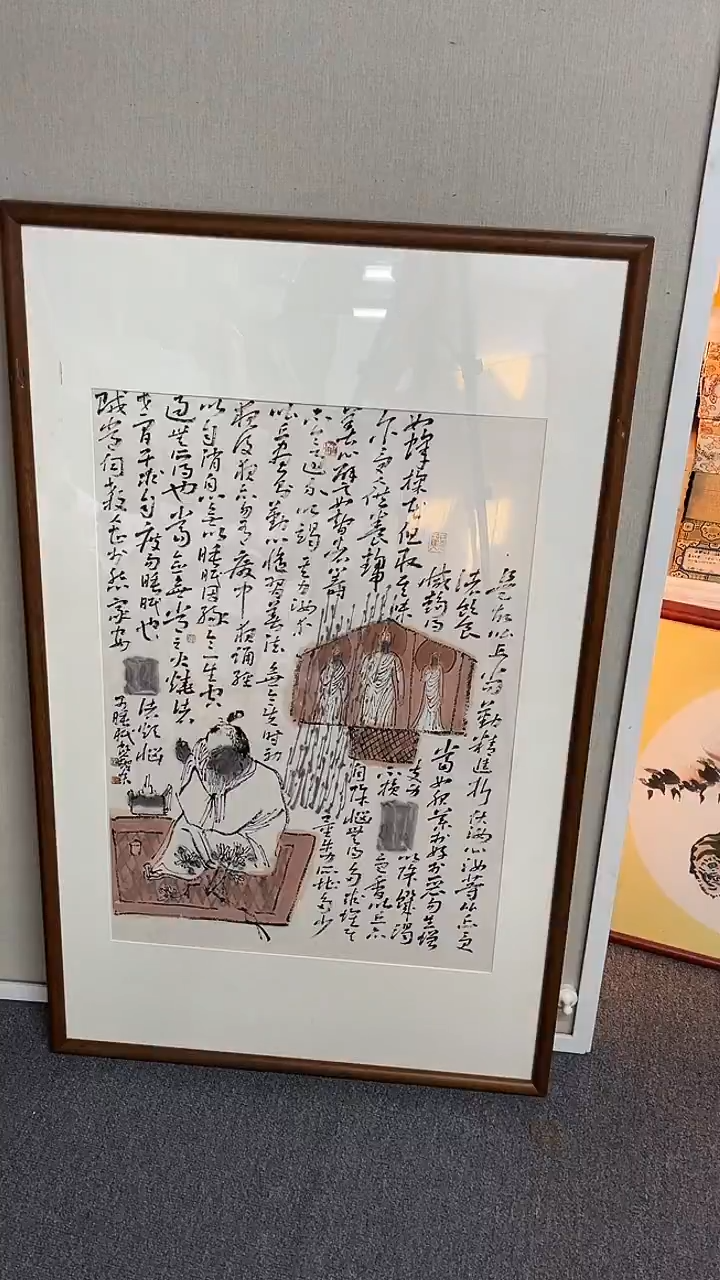 是故比丘當勤精進折伏瞋心汝等比丘受
諸飲食當如服藥於好於惡勿生增
減趣得支身以除饑渴
如蜂採花但取其味不損色香比丘亦
尔受人供養趣自除惱無得多求壞其
善心譬如智者籌量牛力所堪多少
不令過分以竭其力汝等
比丘晝則勤心修習善法無令失時初
夜後夜亦勿有廢中夜誦經
以自消息無以睡眠因緣令一生空
過無所得也當念無常之火燒諸
世間早求自度勿睡眠也諸煩惱
賊常伺殺人甚於怨家安
可睡眠